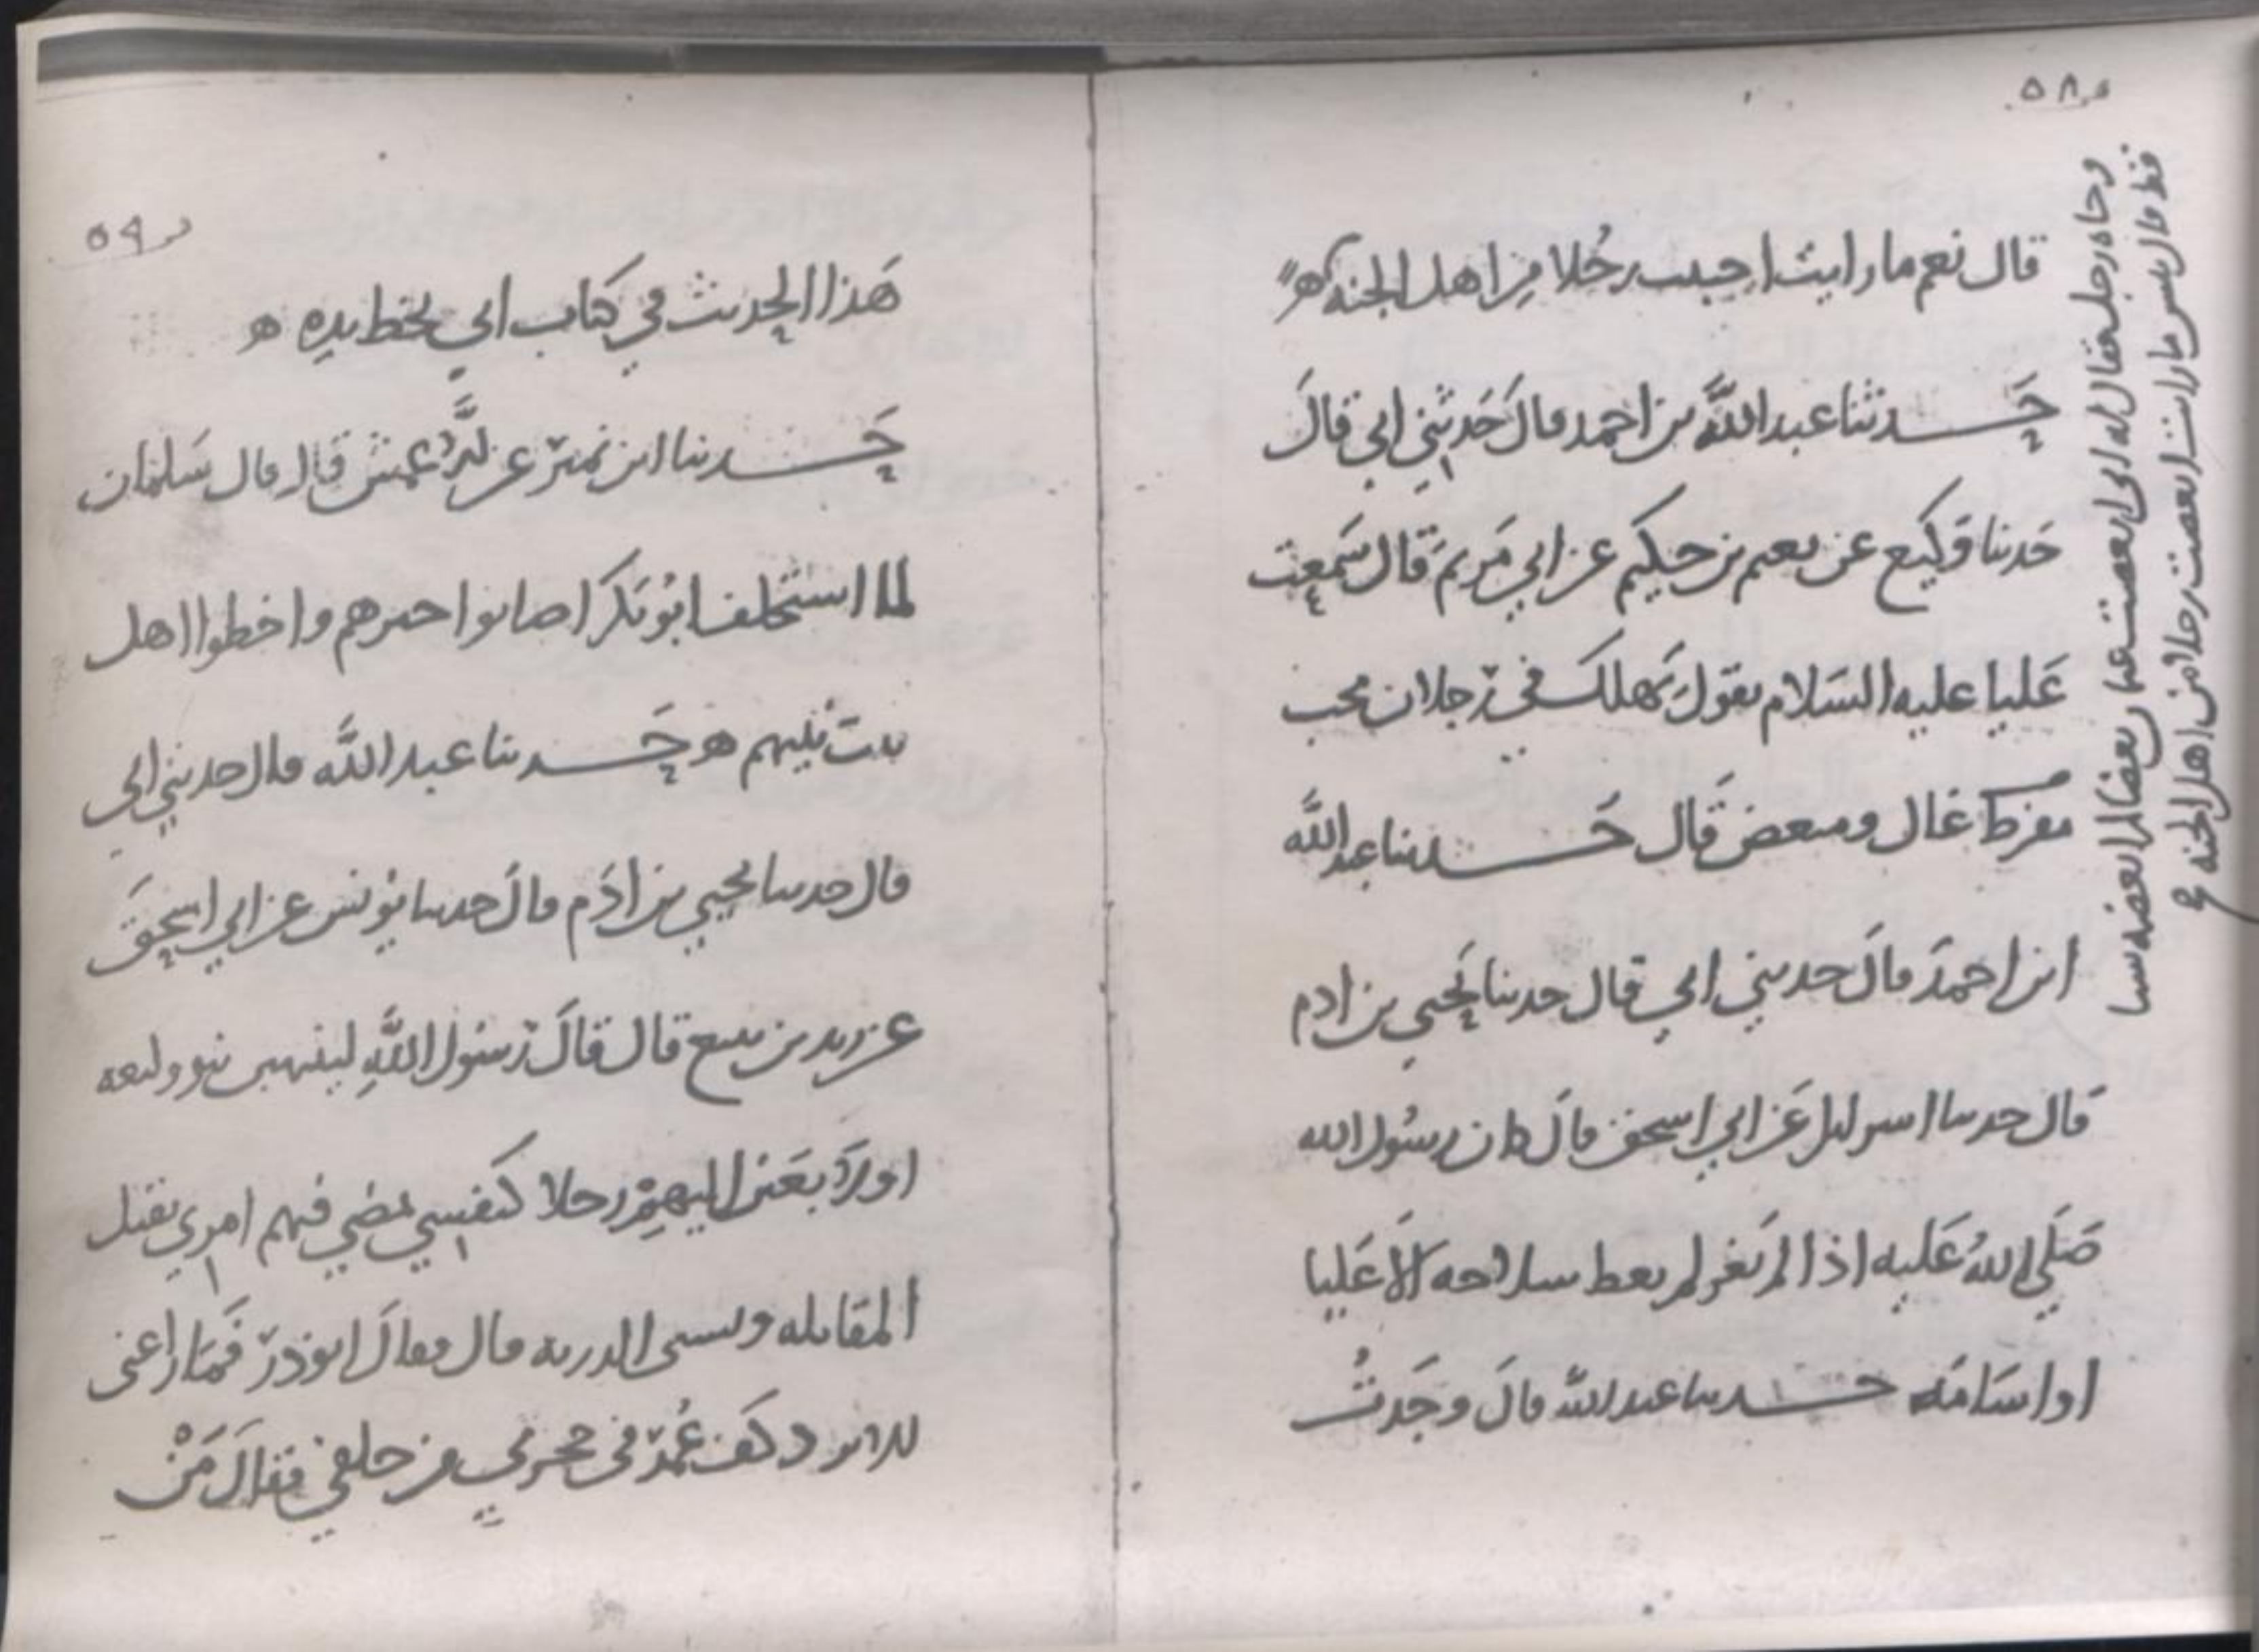 ٥٨
قال نعم ما رايت احببت رجلا من اهل الجنه ه
حدثنا عبد الله بن احمد قال حدثني ابي قال
حدثنا وكيع عن نعيم بن حكيم عن ابي مريم قال سمعت
عليا عليه السلام يقول يهلك في رجلان محب
مفرط غال ومبغض قال حدثنا عبد الله
ابن احمد قال حدثني ابي قال حدثنا يحيى بن ادم
قال حدثنا اسرايل عن ابي اسحق قال كان رسول الله
صلى الله عليه اذا لم يغز لم يعط سلاحه الا عليا
او اسامه حدثنا عبد الله قال وجدت
وجاه رجل فقال له اني ابغضت عثمان بغضا لم ابغضه شيا
قط قال بئس ما رايت ابغضت رجلا من اهل الجنه
٥٩
هذا الحديث في كتاب ابي بخط يده ه
حدثنا ابن نمير عن الاعمش قال قال سلمان
لما استخلف ابو بكر اصابوا خيرهم واخطوا اهل
بيت نبيهم ه حدثنا عبد الله قال حدثني ابي
قال حدثنا يحيي بن ادم قال حدثنا يونس عن ابي اسحق
عن زيد بن يثيع قال قال رسول الله لينتهين بنو وليعه
او لابعثن اليهم رجلا كنفسي يمضي فيهم امري يقتل
المقاتله ويسبى الذريه قال فقال ابو ذر فما راعني
الا برد كف عمر في حجزتي من خلفي فقال من